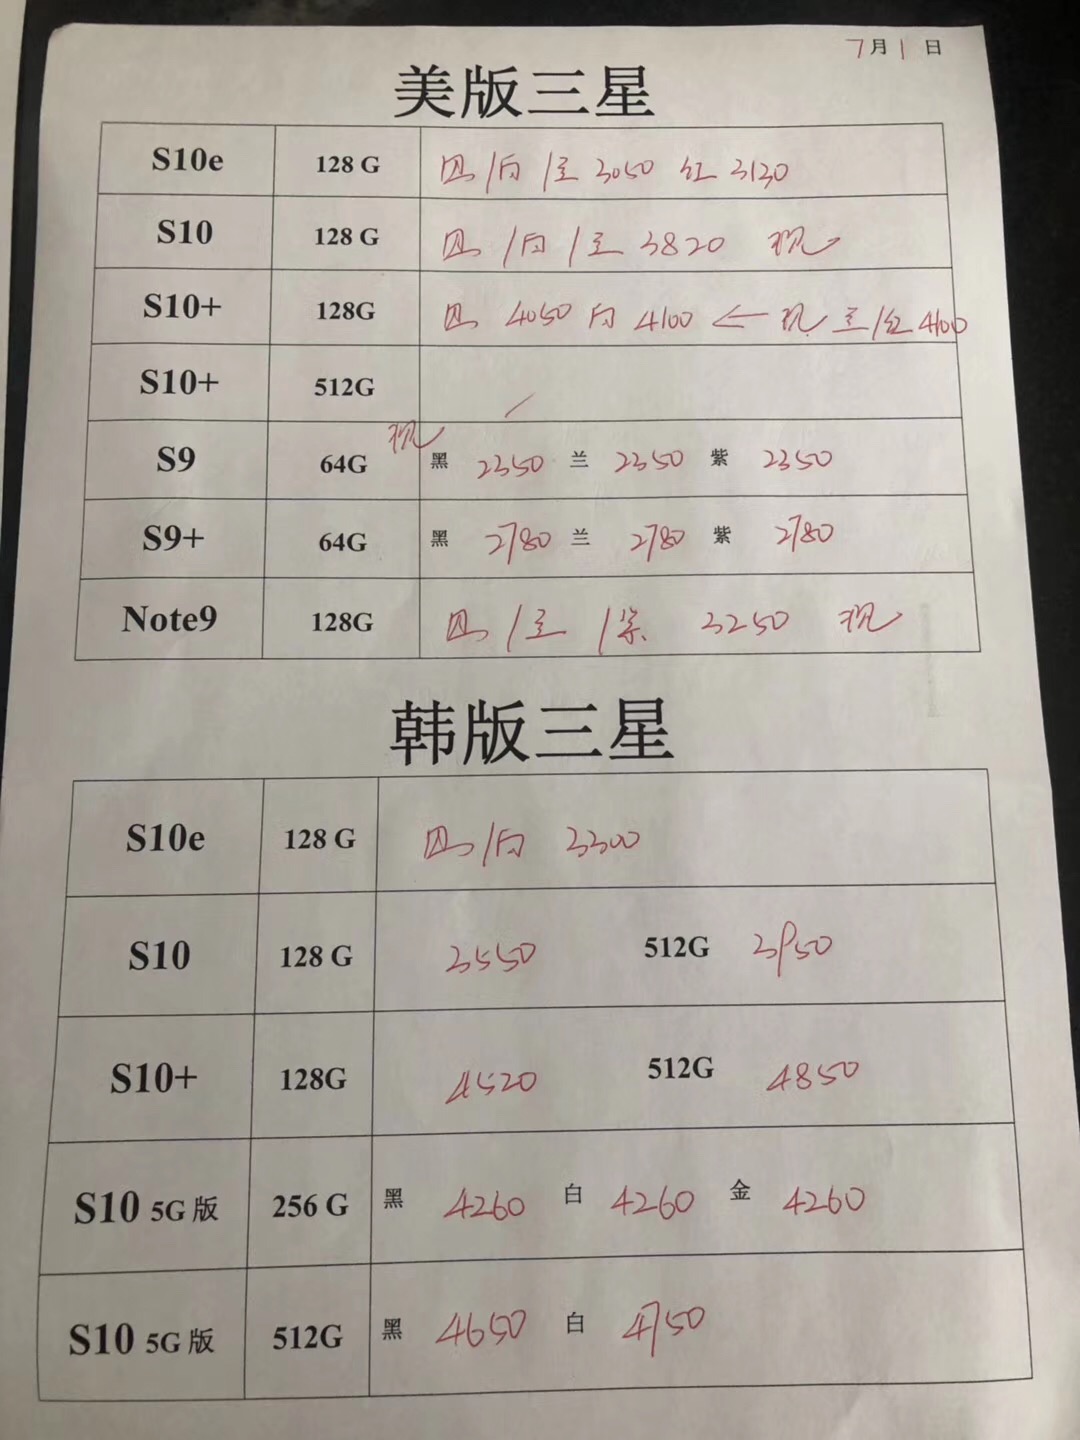 7月1日
美版三星
S10e 128 G 黑/白/兰 3050 红 3130
S10 128 G 黑/白/兰 3820 现
S10+ 128G 黑 4050 白 4100 ← 现 兰/红 4100
S10+ 512G
S9 64G 现 黑 2350 兰 2350 紫 2350
S9+ 64G 黑 2780 兰 2780 紫 2780
Note9 128G 黑/兰/紫 3250 现
韩版三星
S10e 128 G 黑/白 3300
S10 128 G 3550 512G 3950
S10+ 128G 4520 512G 4850
S10 5G版 256 G 黑 4260 白 4260 金 4260
S10 5G版 512G 黑 4650 白 4750